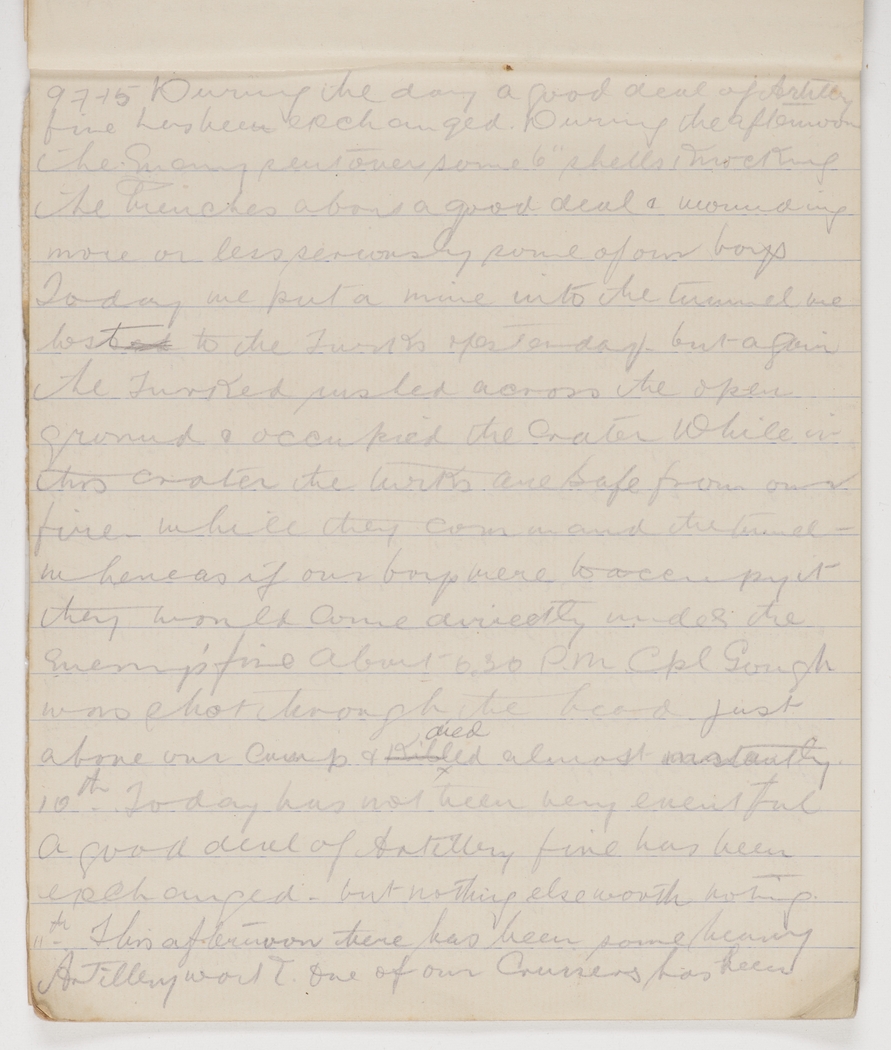 9-7-15 During the day a good deal of Artillery
fire has been exchanged. During the afternoon
the Enemy sent over some 6" shells knocking
the Trenches about a good deal & wounding
more or less seriously some of our boys
Today we put a mine into the tunnel we
lost to the Turks yesterday - but again
the Turked rusled across the open
ground & occupied the Crater While in
this crater the turks are safe from our
fire - while they command the tunnel -
whereas if our boys were to occupy it
they would Come directly under the
Enemy's fire About 6.30 P.M Cpl Gough
was shot through the head just
above our Camp & died almost instantly.
10th - Today has not been very eventful
A good deal of Artillery fire has been
exchanged - but nothing else worth noting.
11th - This afternoon there has been some heavy
Artillery work. One of our Cruisers has been